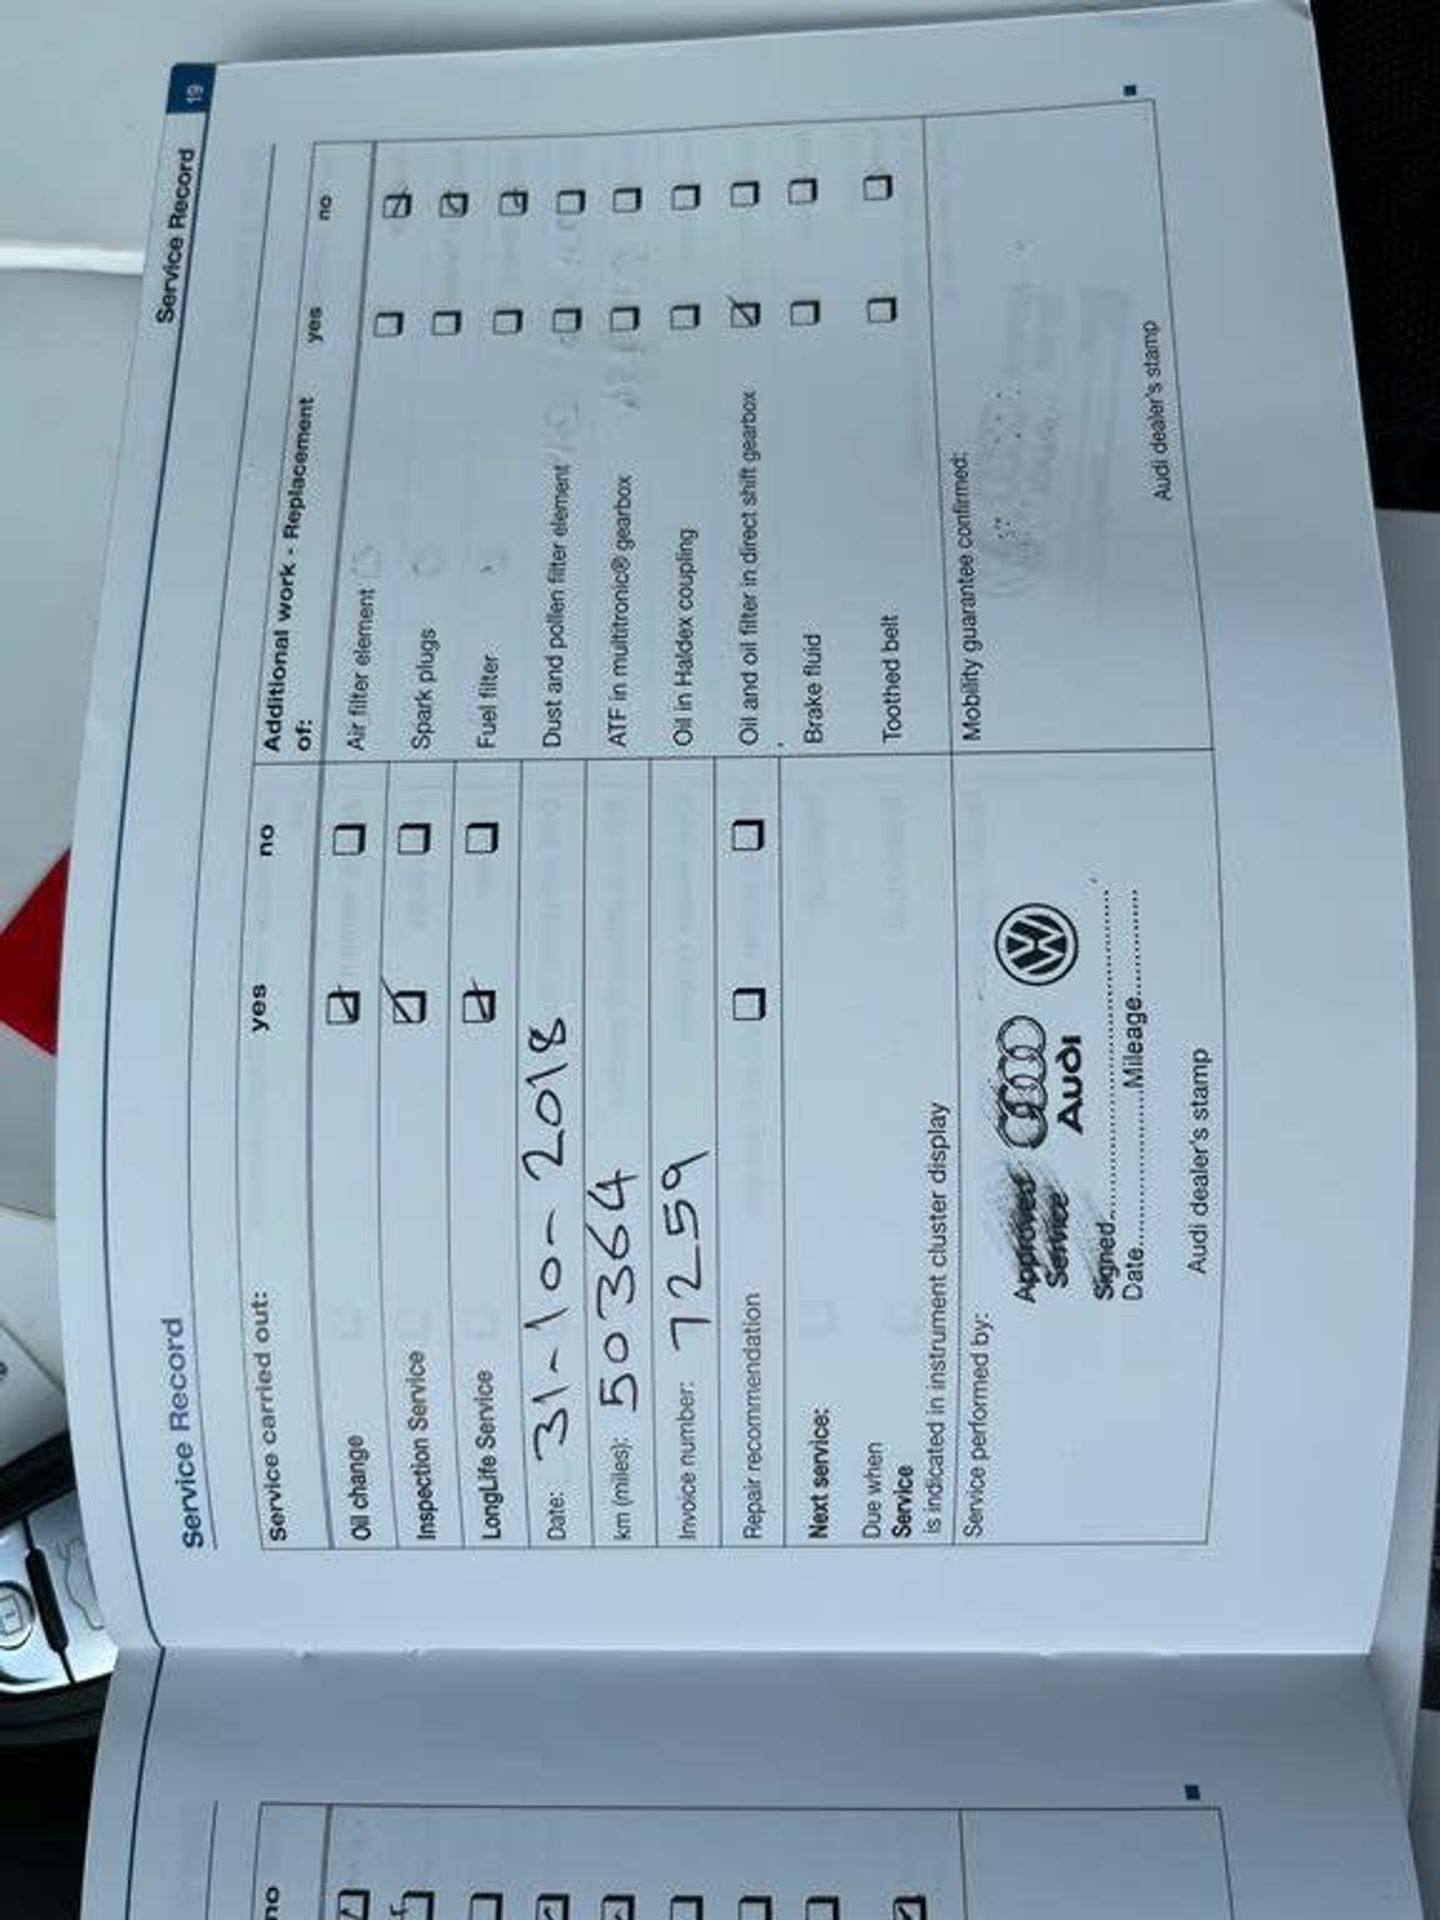 Service Record 19
Service Record
Service carried out: yes no
Oil change
Inspection Service
LongLife Service
Date: 31-10-2018
km (miles): 50364
Invoice number: 7259
Repair recommendation
Next service:
Due when
Service
is indicated in instrument cluster display
Service performed by:
Approved
Service
Audi
Signed
Date Mileage
Audi dealer's stamp
Additional work - Replacement
of: yes no
Air filter element
Spark plugs
Fuel filter
Dust and pollen filter element
ATF in multitronic® gearbox
Oil in Haldex coupling
Oil and oil filter in direct shift gearbox
Brake fluid
Toothed belt
Mobility guarantee confirmed:
Audi dealer's stamp
no